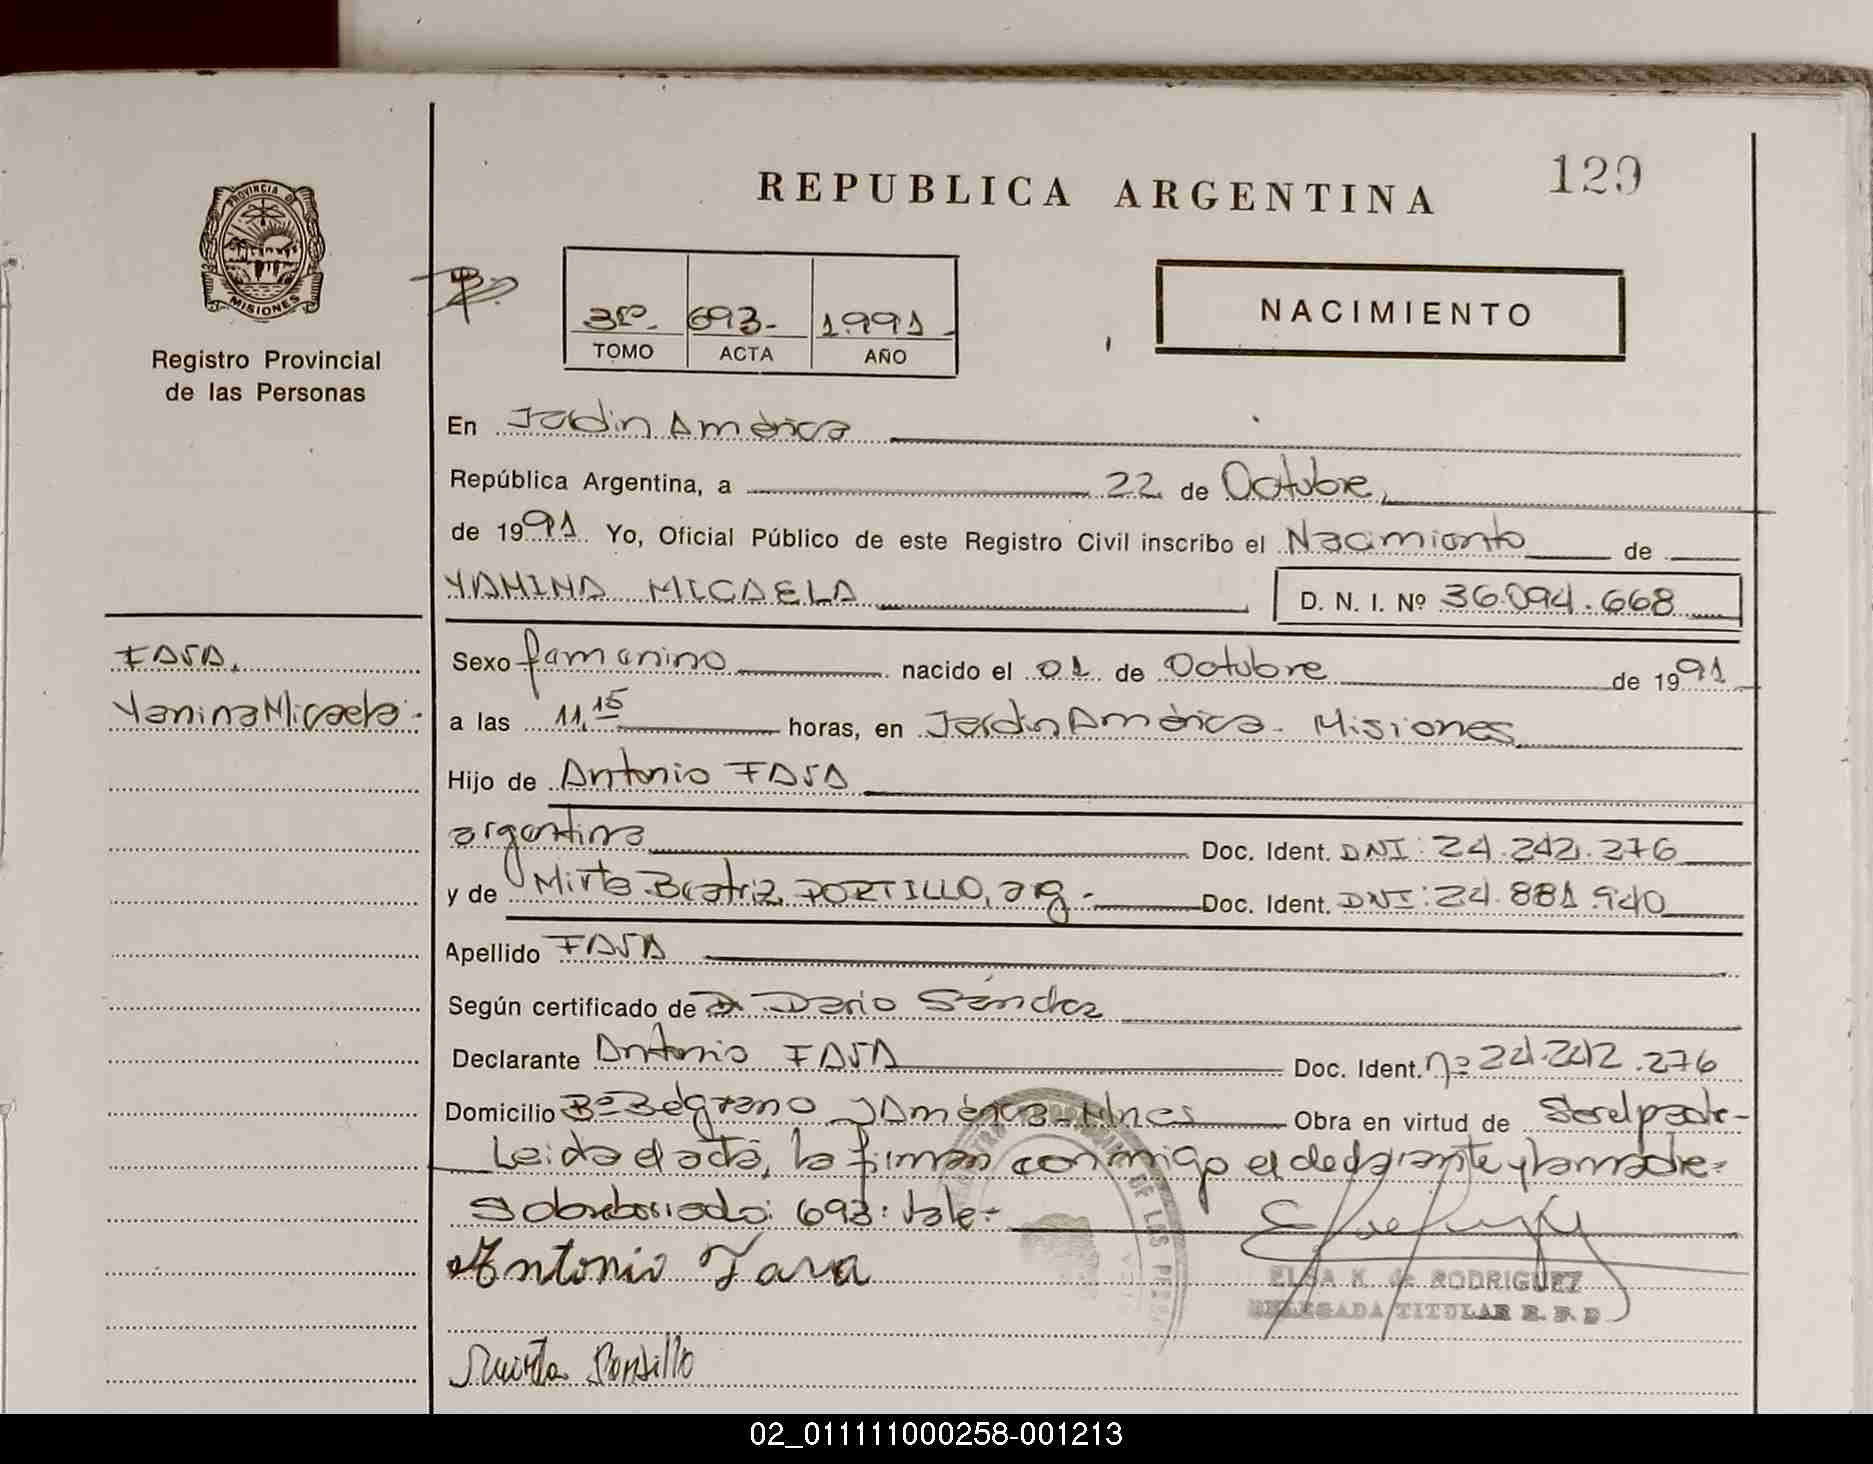 REPUBLICA ARGENTINA
129
PROVINCIA DE
MISIONES
Registro Provincial
de las Personas
3º- 693- 1991-
TOMO ACTA AÑO
NACIMIENTO
En Jardín América
República Argentina, a 22 de Octubre,
de 1991 Yo, Oficial Público de este Registro Civil inscribo el Nacimiento de
YAMINA MICAELA D. N. I. Nº 36.094.668
FAVA,
Yanina Micaela-
Sexo femenino nacido el 01 de Octubre de 1991
a las 11,15 horas, en Jardín América - Misiones
Hijo de Antonio FAVA
argentina Doc. Ident. DNI: 24.242.276
y de Mirta Beatriz PORTILLO, arg- Doc. Ident. DNI: 24.881.940
Apellido FAVA
Según certificado de Dr. Dario Sánchez
Declarante Antonio FAVA Doc. Ident. nº 24.242.276
Domicilio Bº Belgrano J América - Mnes Obra en virtud de Ser el padre-
Leida el acta, la firman conmigo el declarante y la madre-
Sobreborrado: 693: Vale-
Antonio Fava
ELSA K. de RODRIGUEZ
DELEGADA TITULAR R. P. P.
Mirta Portillo
02_011111000258-001213